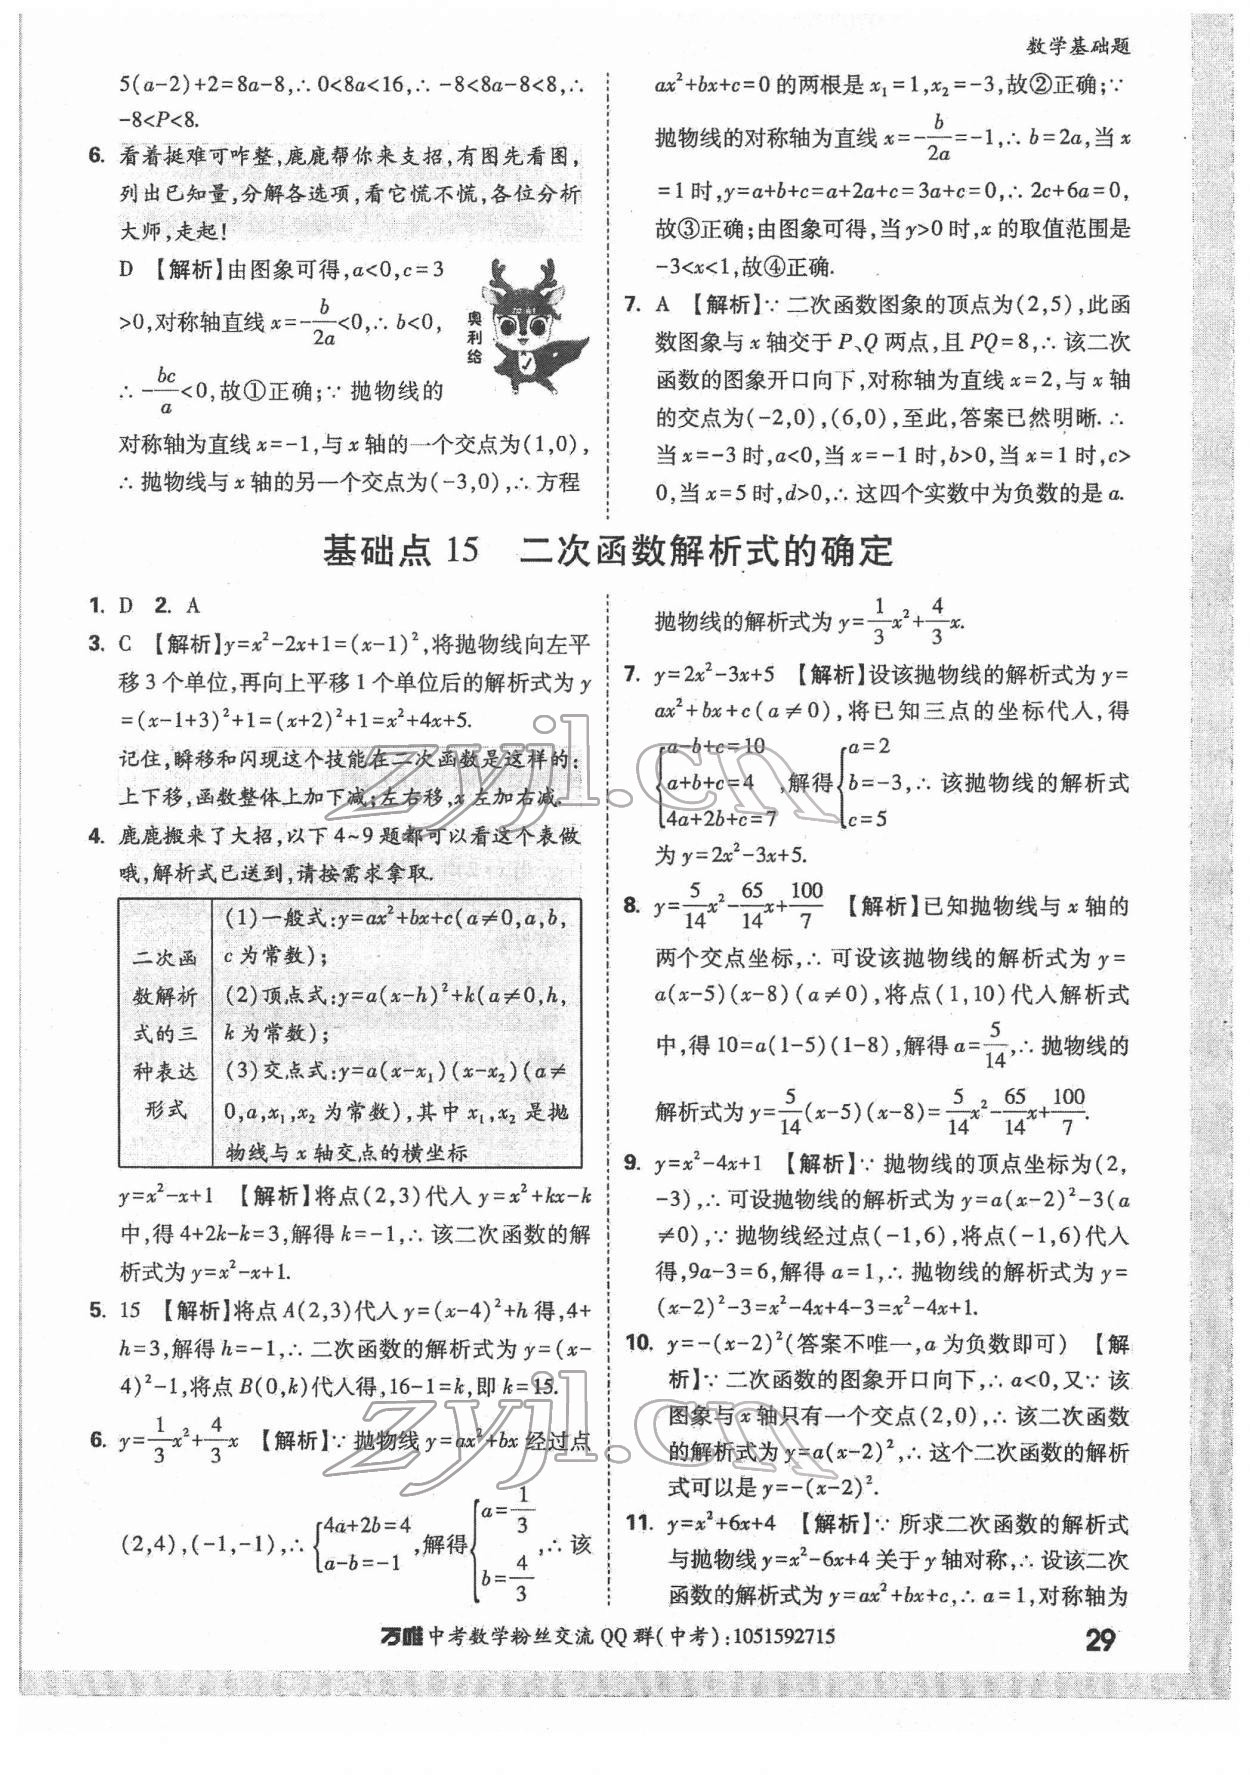 数学基础题
5(a-2)+2=8a-8,∴0<8a<16,∴-8<8a-8<8,∴
-8<P<8.
6. 看着挺难可咋整,鹿鹿帮你来支招,有图先看图,
列出已知量,分解各选项,看它慌不慌,各位分析
大师,走起!
D 【解析】由图象可得,a<0,c=3
>0,对称轴直线x=-\frac{b}{2a}<0,∴b<0,
∴-\frac{bc}{a}<0,故①正确;∵抛物线的
奥利给
对称轴为直线x=-1,与x轴的一个交点为(1,0),
∴抛物线与x轴的另一个交点为(-3,0),∴方程
ax²+bx+c=0的两根是x₁=1,x₂=-3,故②正确;∵
抛物线的对称轴为直线x=-\frac{b}{2a}=-1,∴b=2a,当x
=1时,y=a+b+c=a+2a+c=3a+c=0,∴2c+6a=0,
故③正确;由图象可得,当y>0时,x的取值范围是
-3<x<1,故④正确.
7. A 【解析】∵二次函数图象的顶点为(2,5),此函
数图象与x轴交于P、Q两点,且PQ=8,∴该二次
函数的图象开口向下,对称轴为直线x=2,与x轴
的交点为(-2,0),(6,0),至此,答案已然明晰.∴
当x=-3时,a<0,当x=-1时,b>0,当x=1时,c>
0,当x=5时,d>0,∴这四个实数中为负数的是a.
基础点15 二次函数解析式的确定
1. D 2. A
3. C 【解析】y=x²-2x+1=(x-1)²,将抛物线向左平
移3个单位,再向上平移1个单位后的解析式为y
=(x-1+3)²+1=(x+2)²+1=x²+4x+5.
记住,瞬移和闪现这个技能在二次函数是这样的:
上下移,函数整体上加下减;左右移,x左加右减.
4. 鹿鹿搬来了大招,以下4~9题都可以看这个表做
哦,解析式已送到,请按需求拿取.
二次函
数解析
式的三
种表达
形式
(1)一般式:y=ax²+bx+c(a≠0,a,b,
c为常数);
(2)顶点式:y=a(x-h)²+k(a≠0,h,
k为常数);
(3)交点式:y=a(x-x₁)(x-x₂)(a≠
0,a,x₁,x₂为常数),其中x₁,x₂是抛
物线与x轴交点的横坐标
y=x²-x+1 【解析】将点(2,3)代入y=x²+kx-k
中,得4+2k-k=3,解得k=-1,∴该二次函数的解
析式为y=x²-x+1.
5. 15 【解析】将点A(2,3)代入y=(x-4)²+h得,4+
h=3,解得h=-1,∴二次函数的解析式为y=(x-
4)²-1,将点B(0,k)代入得,16-1=k,即k=15.
6. y=\frac{1}{3}x²+\frac{4}{3}x 【解析】∵抛物线y=ax²+bx经过点
(2,4),(-1,-1),∴{4a+2b=4 a-b=-1,解得{a=\frac{1}{3} b=\frac{4}{3},∴该
抛物线的解析式为y=\frac{1}{3}x²+\frac{4}{3}x.
7. y=2x²-3x+5 【解析】设该抛物线的解析式为y=
ax²+bx+c(a≠0),将已知三点的坐标代入,得
{a-b+c=10 a+b+c=4 4a+2b+c=7,解得{a=2 b=-3,∴该抛物线的解析式 c=5
为y=2x²-3x+5.
8. y=\frac{5}{14}x²-\frac{65}{14}x+\frac{100}{7} 【解析】已知抛物线与x轴的
两个交点坐标,∴可设该抛物线的解析式为y=
a(x-5)(x-8)(a≠0),将点(1,10)代入解析式
中,得10=a(1-5)(1-8),解得a=\frac{5}{14},∴抛物线的
解析式为y=\frac{5}{14}(x-5)(x-8)=\frac{5}{14}x²-\frac{65}{14}x+\frac{100}{7}.
9. y=x²-4x+1 【解析】∵抛物线的顶点坐标为(2,
-3),∴可设抛物线的解析式为y=a(x-2)²-3(a
≠0),∵抛物线经过点(-1,6),将点(-1,6)代入
得,9a-3=6,解得a=1,∴抛物线的解析式为y=
(x-2)²-3=x²-4x+4-3=x²-4x+1.
10. y=-(x-2)²(答案不唯一,a为负数即可) 【解
析】∵二次函数的图象开口向下,∴a<0,又∵该
图象与x轴只有一个交点(2,0),∴该二次函数
的解析式为y=a(x-2)²,∴这个二次函数的解析
式可以是y=-(x-2)².
11. y=x²+6x+4 【解析】∵所求二次函数的解析式
与抛物线y=x²-6x+4关于y轴对称,∴设该二次
函数的解析式为y=ax²+bx+c,∴a=1,对称轴为
万唯中考数学粉丝交流QQ群(中考):1051592715
29
zyjl.cn
zyjl.cn